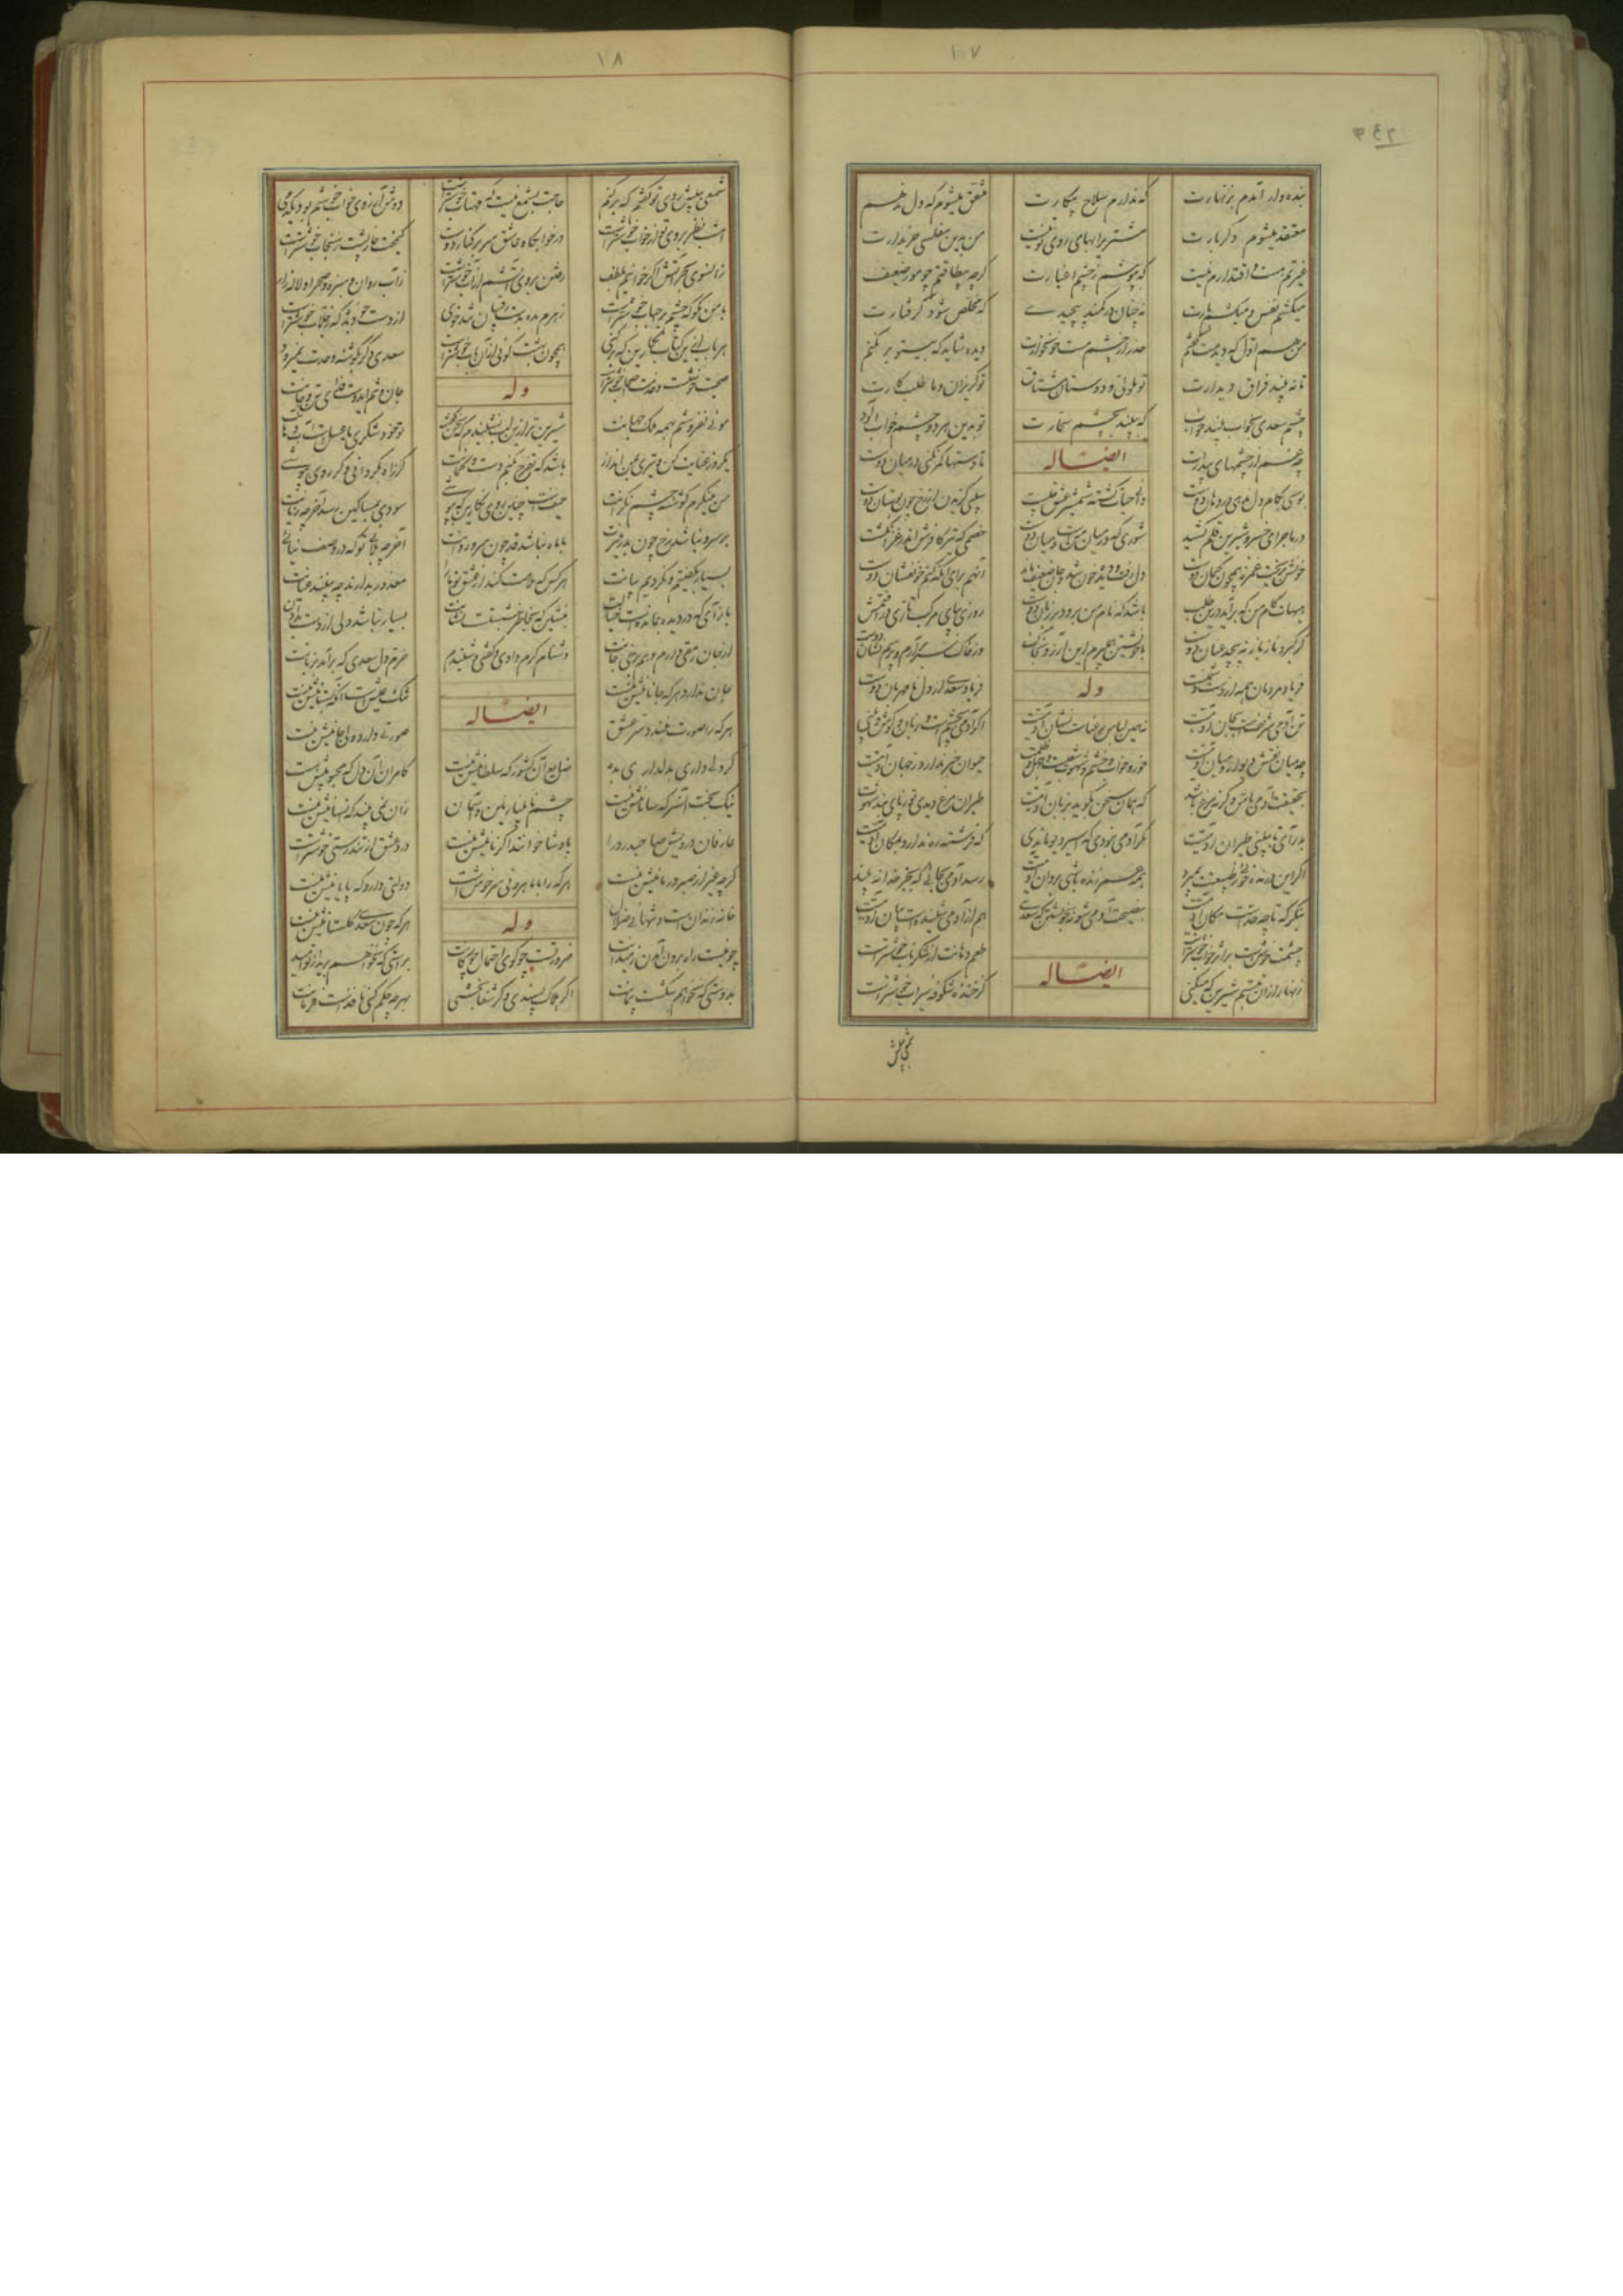 ۱۷
بنده وار آمدم بزنهارت که ندارم سلاح پیکارت متفق میشوم که دل ندهم
معتقد میشوم دگر بارت مشتری را بهای روی تو نیست من بدین مفلسی خریدارت
غیرتم هست و اقتدارم نیست که بپوشم ز چشم اغیارت گرچه بیطاقتم چو مور ضعیف
میکشم نفس و میکشم بارت نه چنان در کمند پیچیدی که مخلص شود گرفتارت
من هم اول که دیدمت گفتم حذر از چشم مست خونخوارت دیده شاید که بیتو بر نکنم
تا نه بیند فراق دیدارت تو ملولی و دوستان مشتاق تو گریزان و ما طلبکارت
چشم سعدی بخواب بیند خواب که ببیند بچشم سحارت تو بدین هر دو چشم خواب آلود
چه غم از چشمهای بیدارت ایضاً له تا دستها کمر نکنی در میان دوست
بوسی بکام دل ندهی بر دهان دوست دانی حیات کشته شمشیر عشق چیست سیبی گزیدن از رخ چون بوستان دوست
در ماجرای خسرو و شیرین قلم کشید شوری که در میان منست و میان دوست خصمی که تیر کافرش اندر غزا نکشت
خونش بریخت غمزه همچون کمان دوست دل رفت و دیده خون شد و جان ضعیف ماند آنهم برای آنکه کنم خونفشان دوست
هیهات کام من که برآید درین طلب باشد که نام من برود بر زبان دوست روزی بپای مرکب تازی در افتمش
گر کبر و ناز باز نه پیچد عنان دوست با خویشتن همی برم این آرزو بخاک وز خاک سر برآرم و پرسم نشان دوست
فریاد مردمان همه از دست دشمنست وله فریاد سعدی از دل نامهربان دوست
تن آدمی شریفست بجان آدمیت نه همین لباس زیباست نشان آدمیت اگر آدمی بچشم است و زبان و گوش و بینی
چه میان نقش دیوار و میان آدمیت خور و خواب و خشم و شهوت شغبست و جهل و ظلمت حیوان خبر ندارد ز جهان آدمیت
بحقیقت آدمی باش وگرنه مرغ باشد که همان سخن بگوید بزبان آدمیت طیران مرغ دیدی تو ز پای بند شهوت
بدر آی تا ببینی طیران آدمیت مگر آدمی نبودی که اسیر دیو ماندی که فرشته ره ندارد بمکان آدمیت
اگر این درنده خوئی ز طبیعتت بمیرد همه عمر زنده باشی بروان آدمیت رسد آدمی بجائی که بجز خدا نه بیند
بنگر که تا چه حدست مکان آدمیت بنصیحت آدمی شو نه بخویشتن که سعدی هم از آدمی شنیدست بیان آدمیت
چشمت خوشست و بر اثر خواب خوشترست طعم دهانت از شکر ناب خوشترست
زنهار از آن تبسم شیرین که میکنی ایضاً له کز خنده شکوفه سیراب خوشترست
۱۸
شمعی به پیش روی تو گفتم که برکنم حاجت بشمع نیست که مهتاب خوشترست دوش آرزوی خواب خوشم بود یکدمی
امشب نظر بروی تو از خواب خوشترست در خوابگاه عاشق سر بر کنار دوست کیمخت خارپشت ز سنجاب خوشترست
زانسوی بحر آتش اگر خوانیم بلطف رفتن بروی آتشم از آب خوشترست زآب روان و سبزه و صحرا و لاله زار
با من مگو که چشم در احباب خوشترست زهرم مده بدست رقیبان تندخوی از دست خود بده که ز جلاب خوشترست
هر باب ازین کتاب نگارین که برکنی همچون بهشت گوئی از آن باب خوشترست سعدی دگر بگوشه وحدت نمیرود
صحبت خوشست و خدمت اصحاب خوشترست وله جان و تنم ایدوست فدای تن و جانت
موئی نفروشم بهمه ملک جهانت شیرین تر ازین لب نشنیدم که سخن گفت تو خود شکری یا عسلست آب دهانت
یکروز عنایت کن و تیری بمن انداز باشد که تفرج بکنم دست و کمانت گر راه بگردانی و گر روی بپوشی
من مینگرم گوشه چشم نگرانت حیفست چنین روی نگارین که بپوشی سودی بمساکین رسد آخر چه زیانت
بر سرو نباشد رخ چون بدر منیرت با ماه نباشد قد چون سرو روانت آخر چه بلائی تو که در وصف نیائی
بسیار بگفتیم و نکردیم بیانت هر کس که ملامت کند از عشق تو ما را معذور بدارند چو بینند عیانت
باز آی که در دیده بماندست خیالت بنشین که بخاطر بنشستست نشانت بسیار نباشد دلی از دست بدادن
از جان رمقی دارم و هم برخی جانت دشنام کرم دادی و گفتی و شنیدم خرم دل سعدی که برآمد بزبانت
جان ندارد هر که جانانیش نیست تنگ عیشست آنکه بستانیش نیست
هر که را صورت نبندد سر عشق ایضاً له صورتی دارد ولی جانیش نیست
گر دلی داری بدلداری بده ضایع آن کشور که سلطانیش نیست کامران آن دل که محبوبیش هست
نیک بخت آنسر که سامانیش نیست چشم نابینا زمین و آسمان زان نمی بیند که انسانیش نیست
عارفان درویش صاحبدرد را پادشا خوانند اگر نانیش نیست درد عشق از تندرستی خوشترست
گرچه غیر از صبر درمانیش نیست هر که را با ماهروئی سرخوشست دولتی دارد که پایانیش نیست
خانه زندان است و تنهائی ضلال وله هر که چون سعدی گلستانیش نیست
چو نیست راه برون آمدن ز میدانت ضرورتست چو گوی احتمال چوگانت براستی که نخواهم بریدن از تو امید
بدوستی که نخواهم شکست پیمانت اگر هلاک پسندی و گر بقا بخشی بهرچه حکم کنی نافذست فرمانت